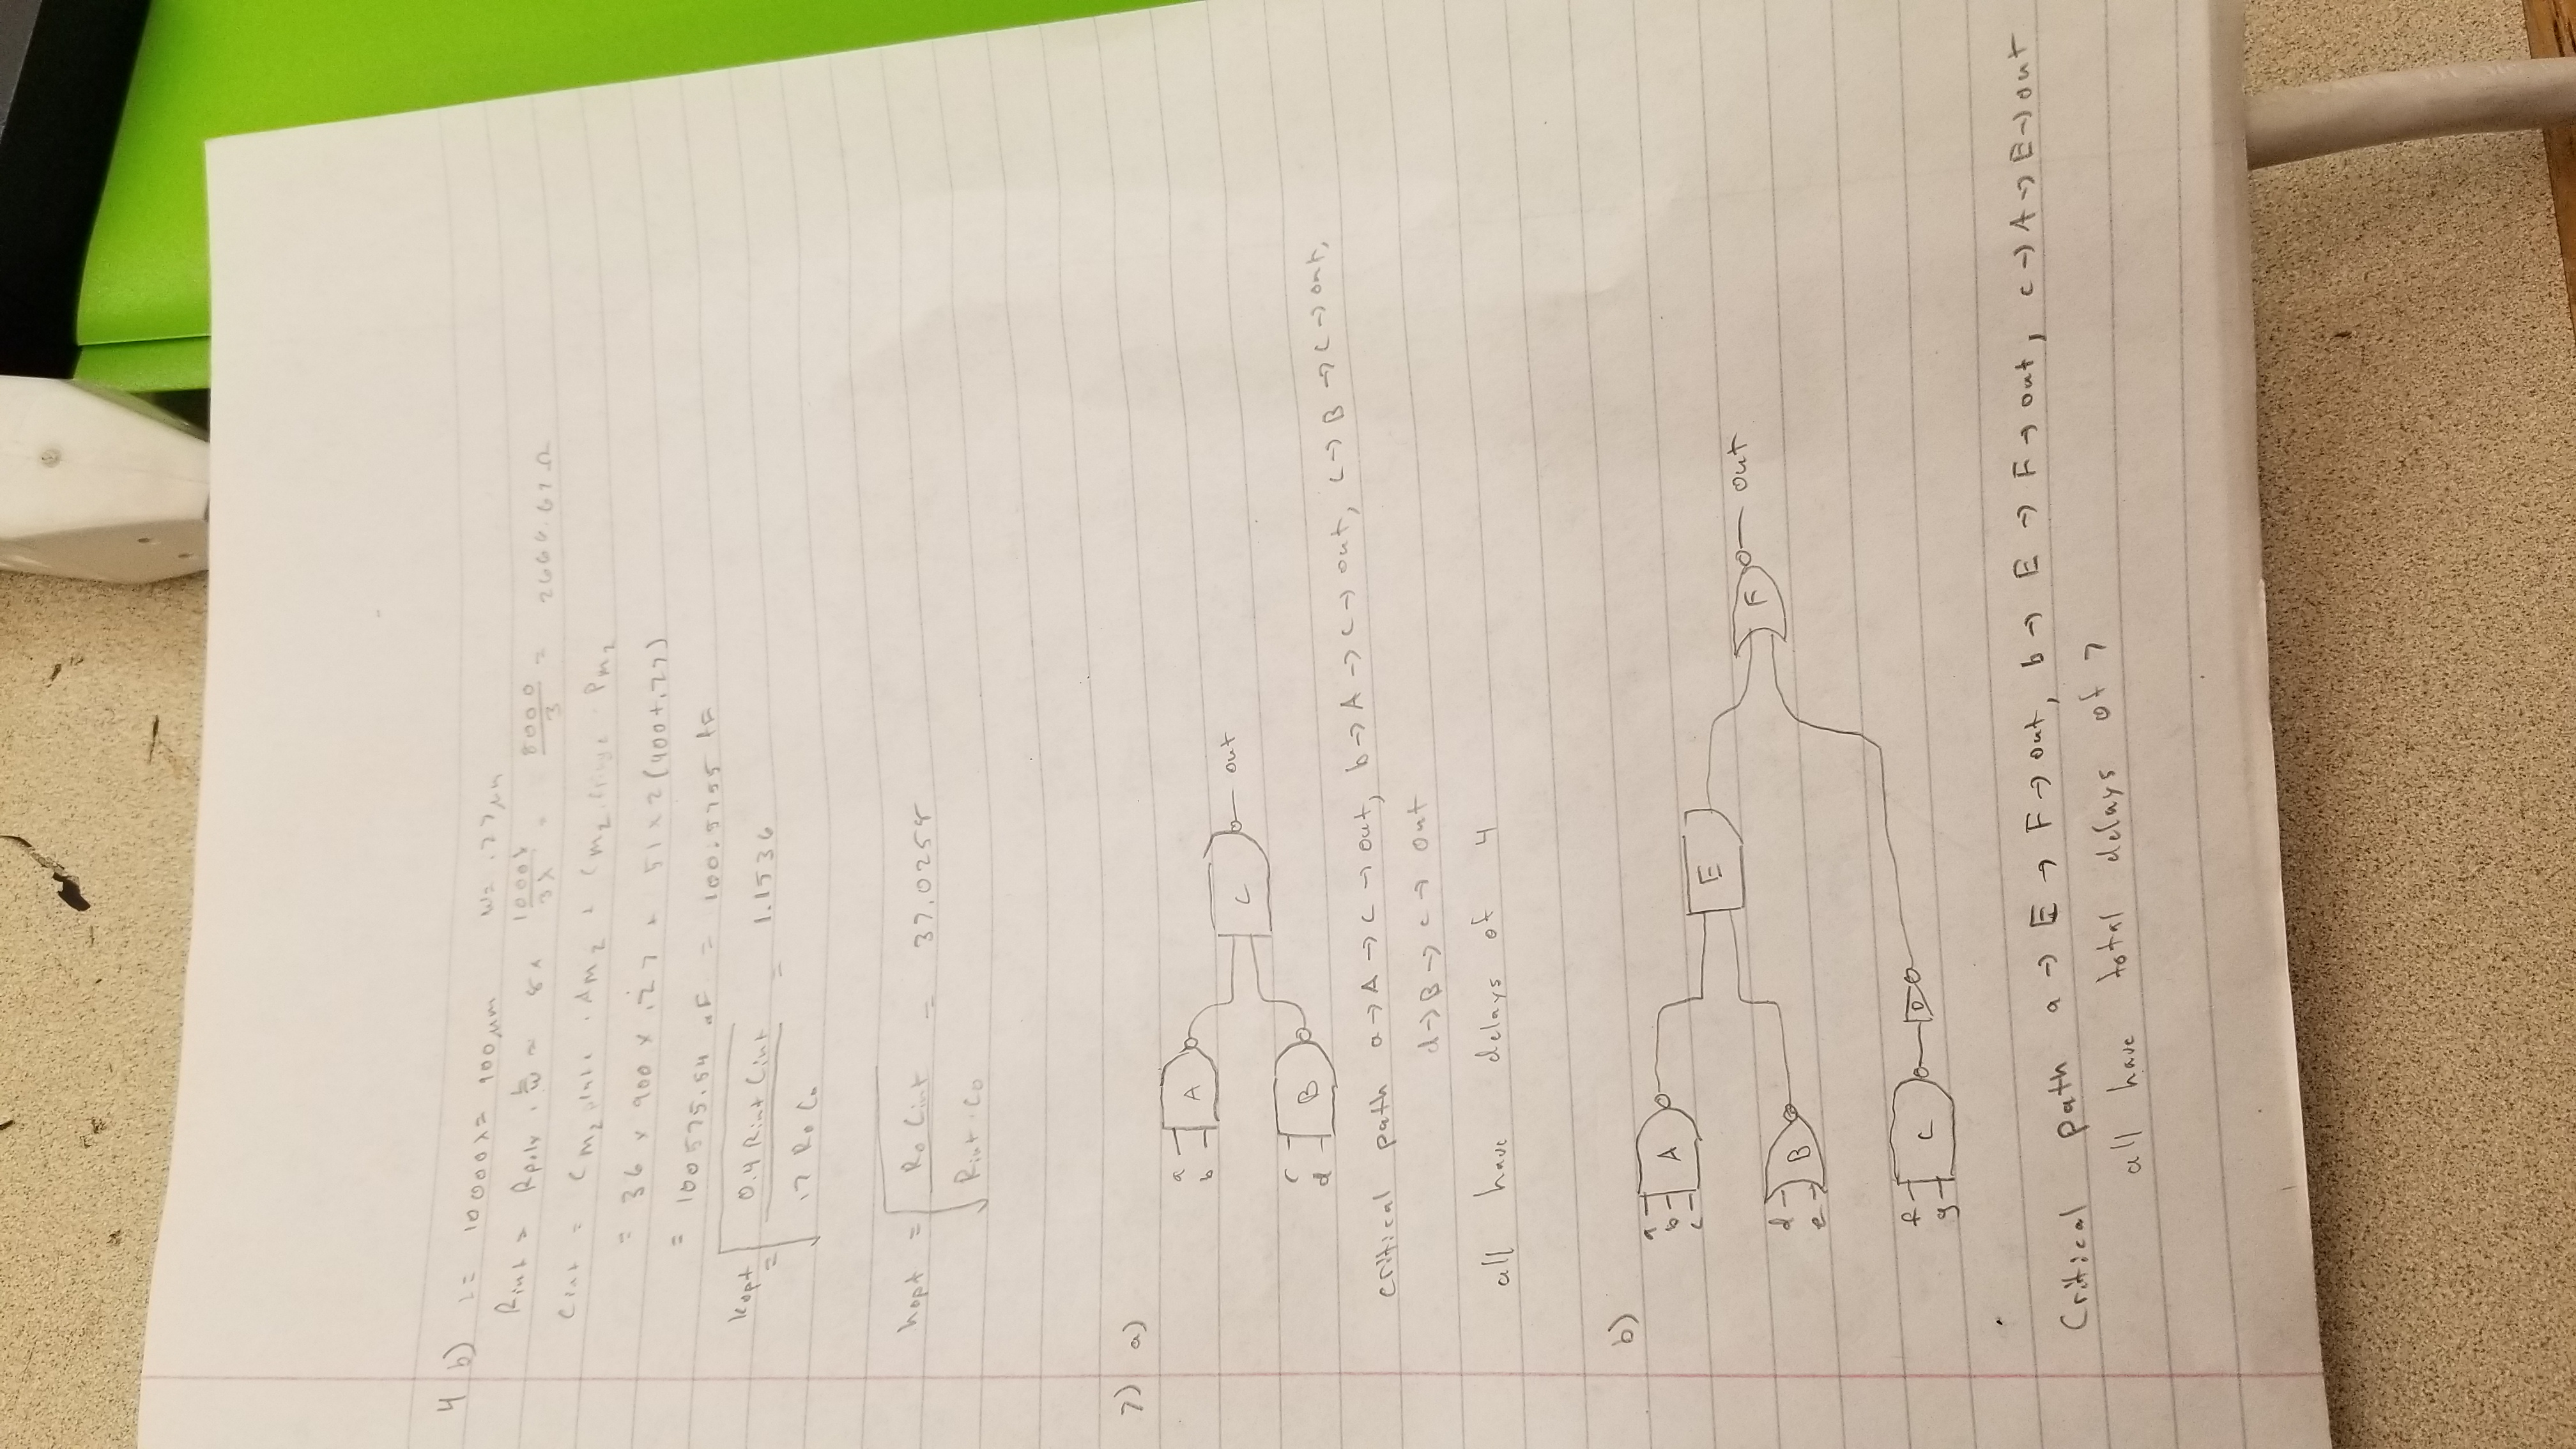 4 b) L = 10000λ = 900 μm W = .27 μm
Rint = Rpoly · L/W = 8 × 1000λ/3λ = 8000/3 = 2666.67 Ω
Cint = CM2 plate · AM2 + CM2 fringe · PM2
= 36 × 900 × .27 + 51 × 2(900+.27)
= 100575.54 aF = 100.5755 fF
Kopt = √(0.4 Rint Cint / .7 R0 C0) = 1.1536
hopt = √(R0 Cint / Rint · C0) = 37.0258
7) a)
a
b
A
C
out
c
d
B
critical path a → A → C → out, b → A → C → out, c → B → C → out,
d → B → C → out
all have delays of 4
b)
a
b
c
A
E
d
e
B
F
out
f
g
C
D
Critical path a → E → F → out, b → E → F → out, c → A → E → out
all have total delays of 7